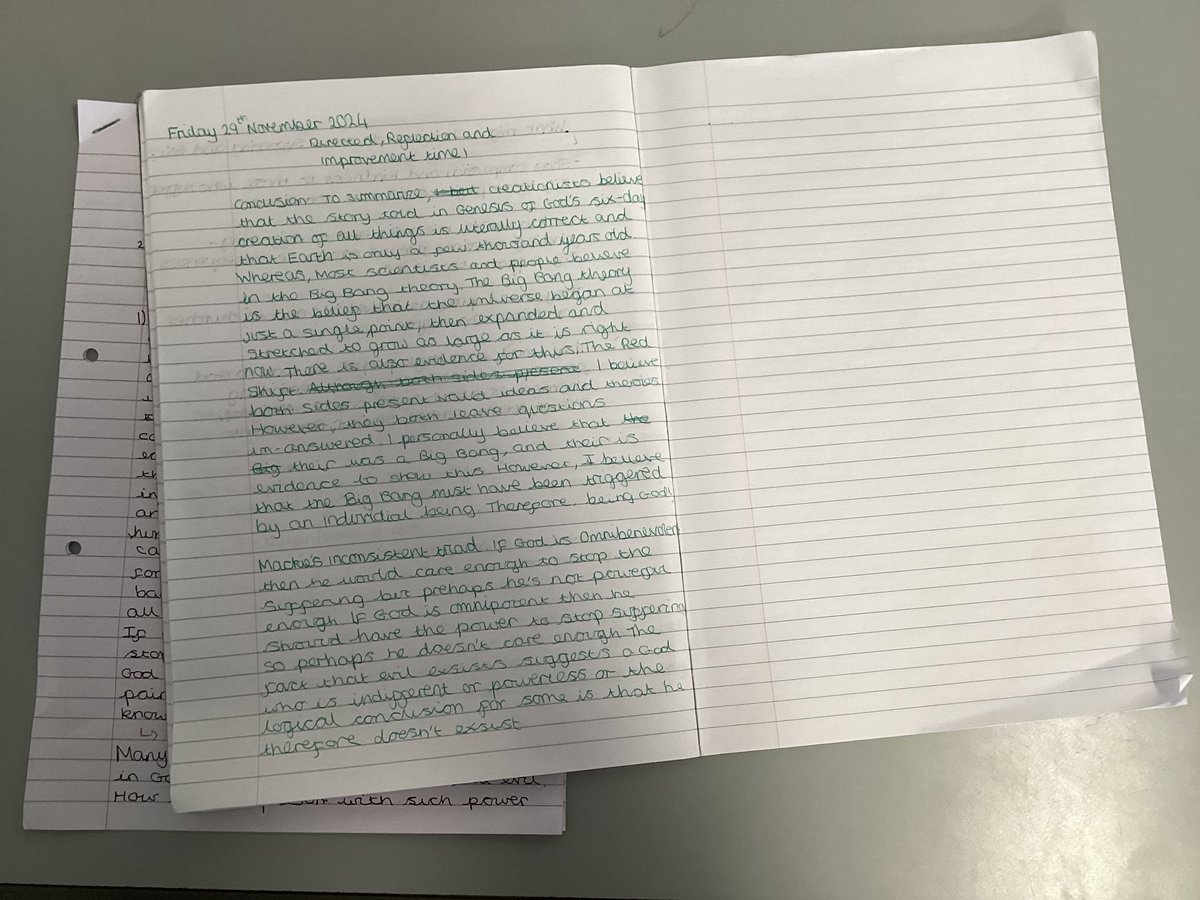 Friday 29th November 2024
Directed, Reflection and
improvement time!
Conclusion. To summarize, creationists believe
that the story told in Genesis of God's six-day
creation of all things is literally correct and
that Earth is only a few thousand years old.
Whereas, Most scientists and people believe
in the Big Bang theory. The Big Bang theory
is the belief that the universe began at
just a single point, then expanded and
stretched to grow as large as it is right
now. There is also evidence for this, The Red
Shift. Although both sides present. I believe
both sides present valid ideas and theroies
However, they both leave questions
un-answered. I personally believe that the
Big their was a Big Bang, and their is
evidence to show this. However, I believe
that the Big Bang must have been triggered
by an individial being. Therefore, being God!
Mackie's inconsistent triad. IF God is Omnibenevolent
then he would care enough to stop the
suffering but prehaps he's not powerful
enough. IF God is omnipotent then he
should have the power to stop suffering
so perhaps he doesn't care enough. The
fact that evil exsists suggests a God
who is indifferent or powerless or the
logical conclusion for some is that he
therefore doesn't exsist
2
1)
in
all
If
God
know
Many
in
evil.
How
with such power